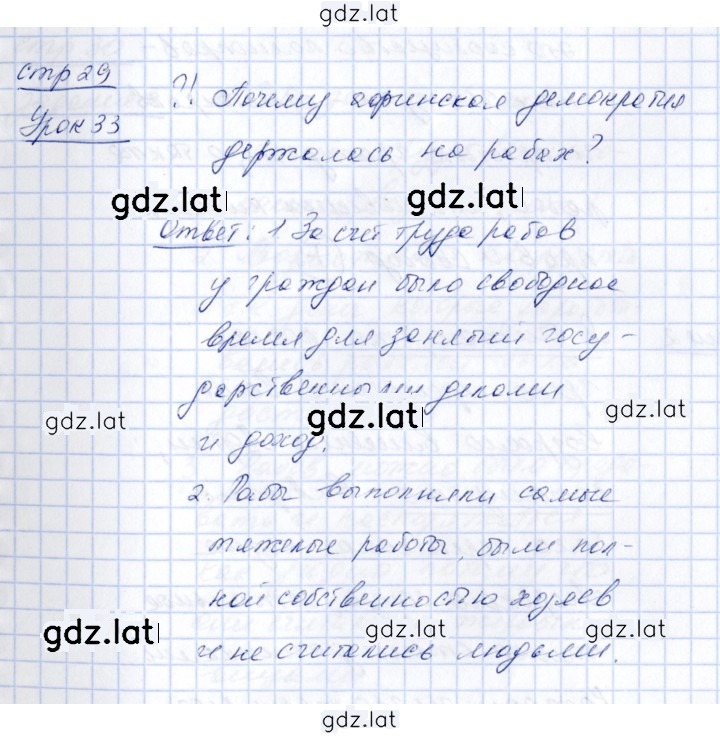 gdz.lat
стр 29
?! Почему афинская демократия
Урок 33
держалась на рабах?
gdz.lat gdz.lat
Ответ: 1 За счет труда рабов
у граждан было свободное
время для занятий госу-
дарственными делами
gdz.lat gdz.lat gdz.lat
и доход.
2. Рабы выполняли самые
тяжелые работы, были пол-
ной собственностью хозяев
gdz.lat gdz.lat gdz.lat
и не считались людьми.
gdz.lat